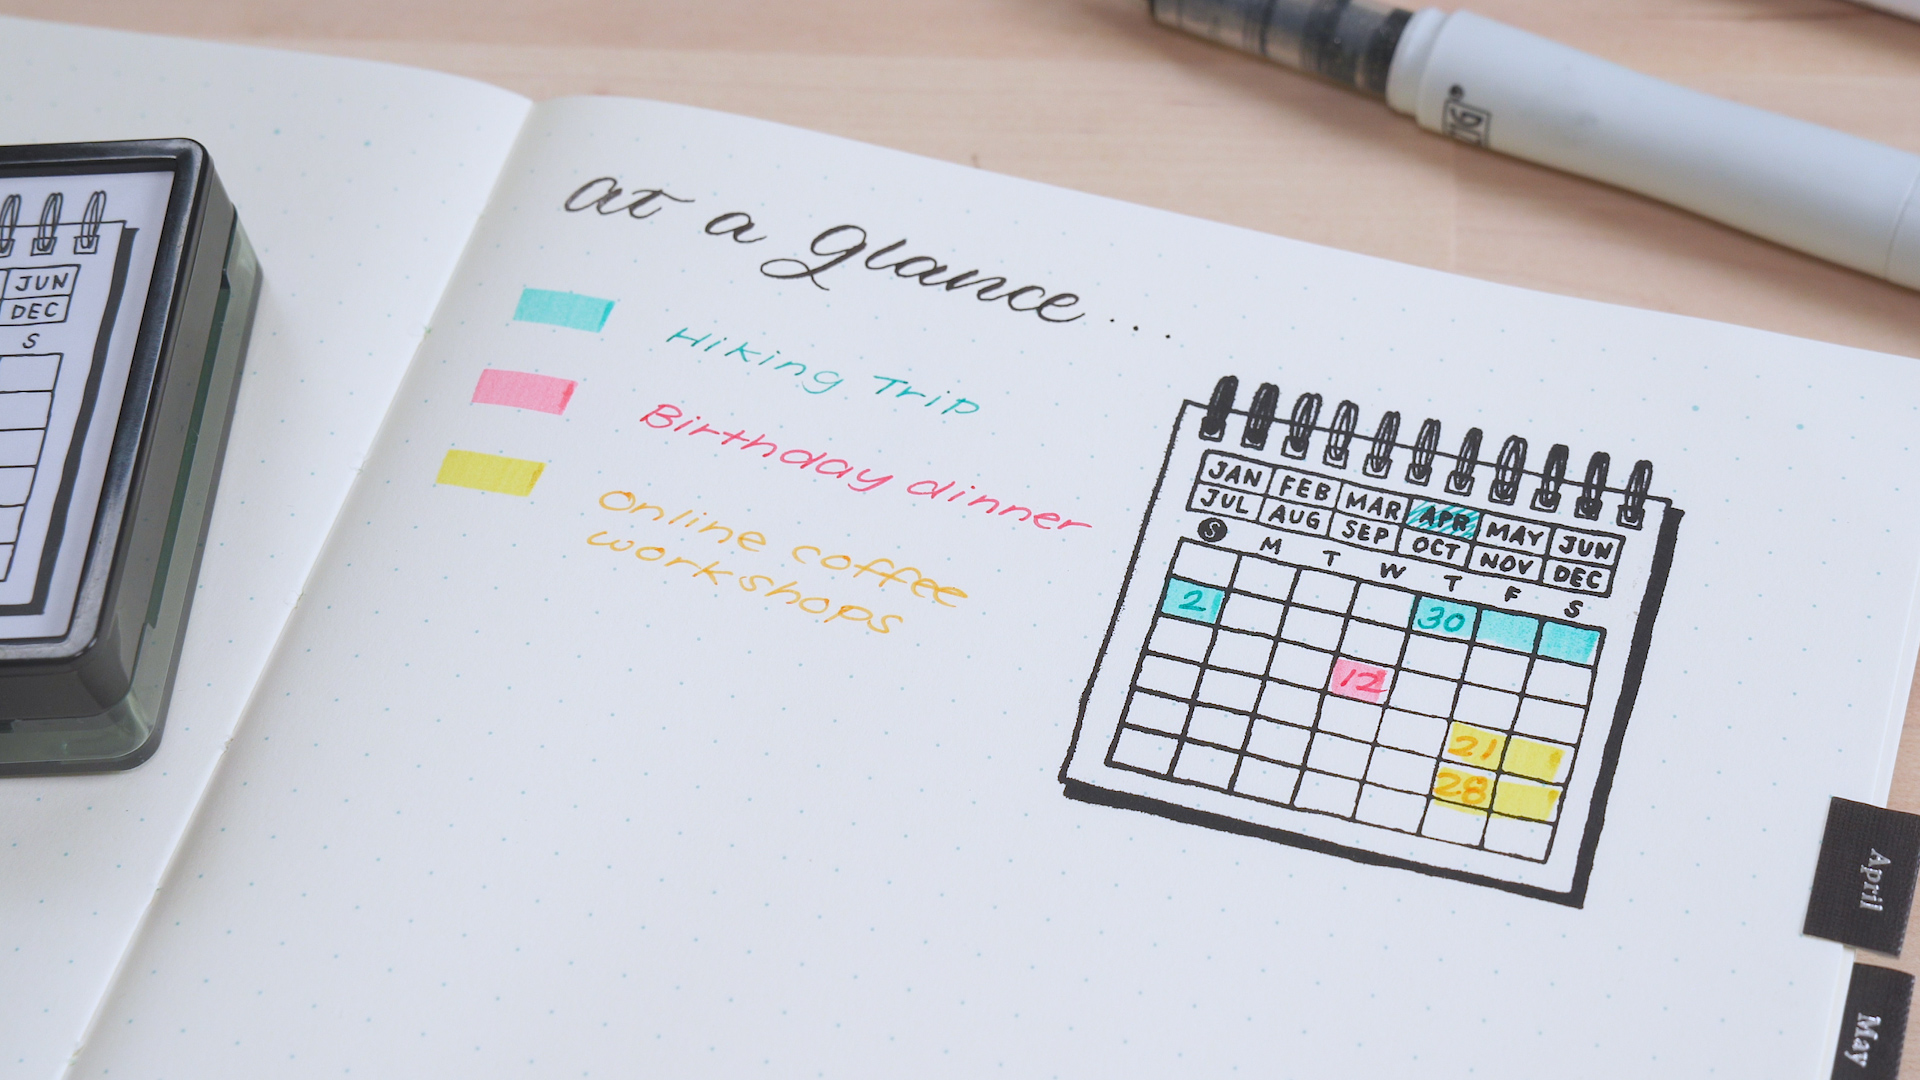 at a glance...
Hiking Trip
Birthday dinner
Online coffee
workshops
JAN FEB MAR APR MAY JUN
JUL AUG SEP OCT NOV DEC
S M T W T F S
2 30
12
21
28
JUN
DEC
S
April
May